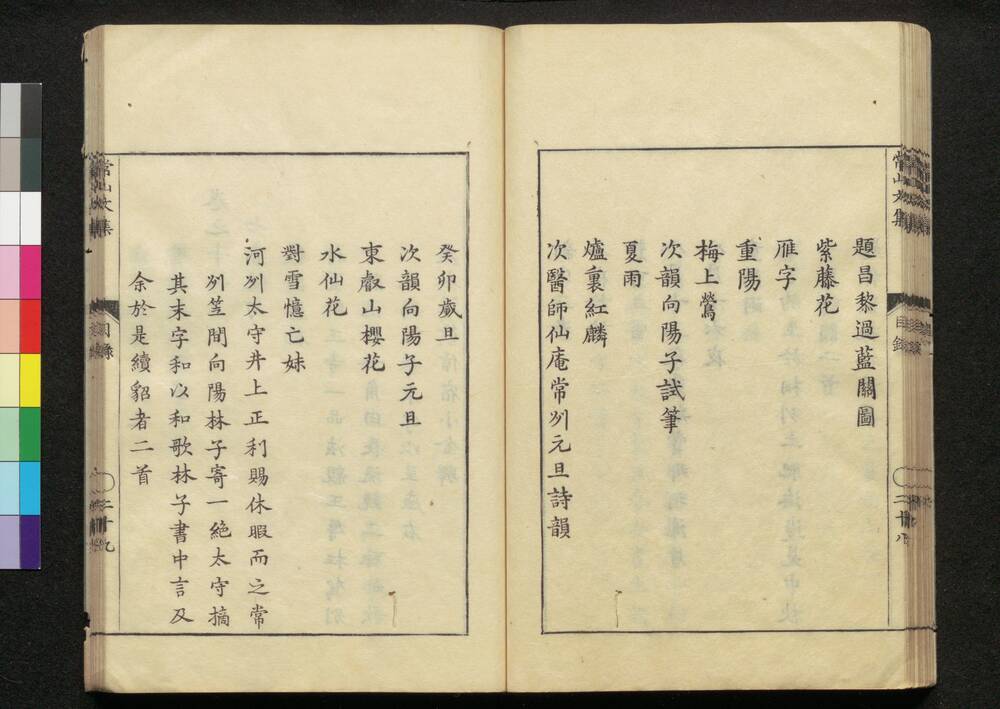 題昌黎過藍關圖
紫藤花
雁字
重陽
梅上鶯
次韻向陽子試筆
夏雨
爐裏紅麟
次醫師仙庵常刕元旦詩韻
癸卯歲旦
次韻向陽子元旦
東叡山櫻花
水仙花
對雪憶亡妹
河刕太守井上正利賜休暇而之常
刕笠間向陽林子寄一絶太守摘
其末字和以和歌林子書中言及
余於是續貂者二首
常山文集
目錄
二十九